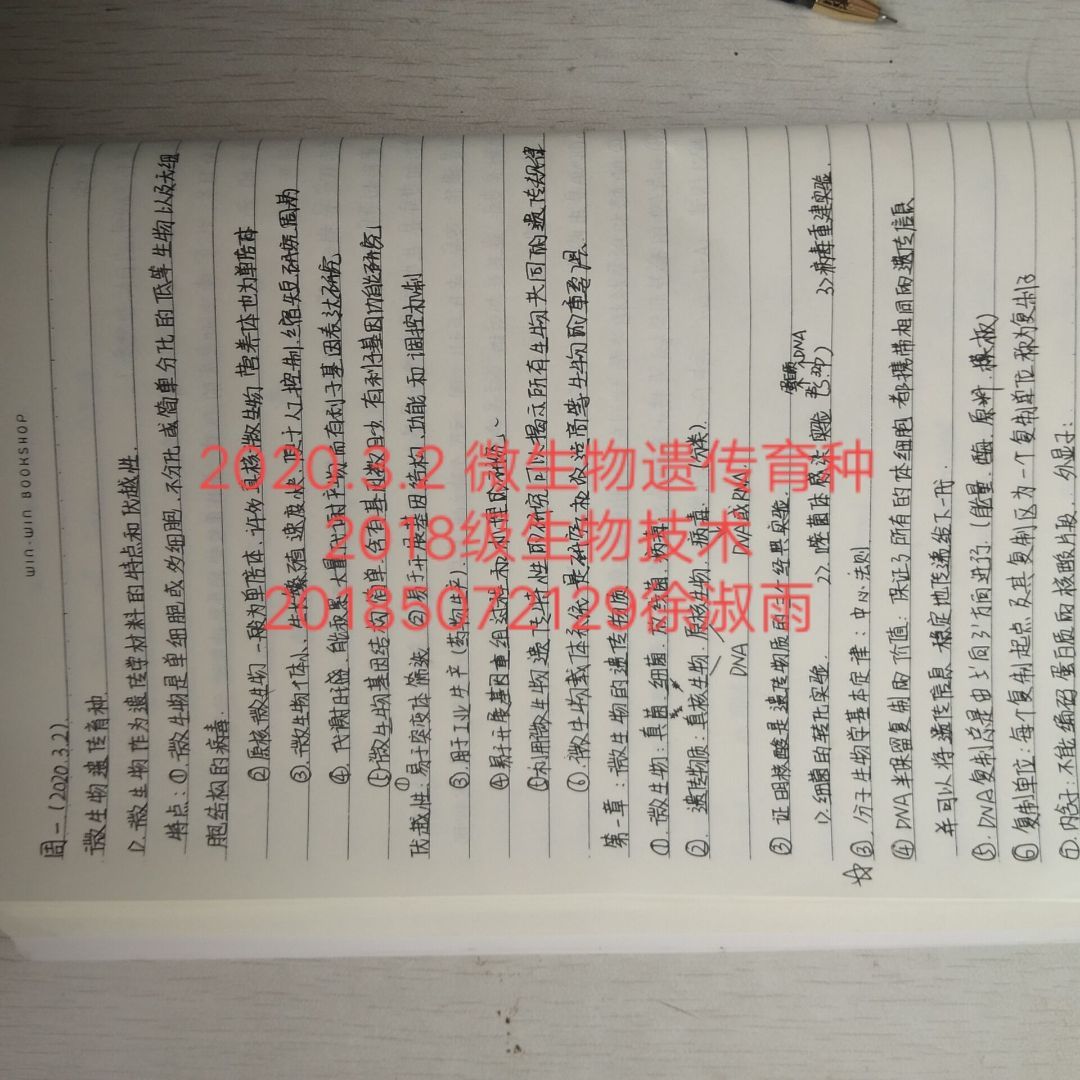 WIN-WIN BOOKSHOP
周一(2020.3.2)
微生物遗传育种
1>. 微生物作为遗传学材料的特点和优越性.
特点:①.微生物是单细胞或多细胞.不分化或简单分化的低等生物以及无细
胞结构的病毒.
②原核微生物一般为单倍体.许多真核微生物营养体也为单倍体
③.微生物个体小、生长繁殖速度快.便于人工控制.缩短研究周期
④.代谢旺盛.能积累大量代谢产物而有利于基因表达研究
⑤微生物基因结构简单.含有基因数目少.有利于基因功能研究
优越性:①易于突变体筛选 ②易于开展基因结构、功能和调控机制
③.用于工业生产(药物生产).
④易于开展基因重组过程和机理的研究、
⑤利用微生物遗传特性的研究可以揭示所有生物共同的遗传规律
⑥微生物载体系统是研究和改造高等生物的重要
第一章:微生物的遗传物质
①.微生物:真菌 细菌.放线菌.病毒
②.遗传物质:真核生物.原核生物.病毒 (分类)
DNA DNA或RNA.
③.证明核酸是遗传物质的三个经典实验.
1>.细菌的转化实验. 2>.噬菌体感染实验(蛋白质 DNA ³⁵S.³²P) 3>病毒重建实验.
☆③.分子生物学基本定律:中心法则
④DNA半保留复制的价值:保证了所有的体细胞都携带相同的遗传信息
并可以将遗传信息稳定地传递给下一代
⑤.DNA复制总是由5'向3'方向进行.(能量 酶 原料.模板)
⑥复制单位:每个复制起点及其复制区为一个复制单位称为复制子
⑦.内含子:不能编码蛋白质的核酸片段. 外显子:
2020.3.2 微生物遗传育种
2018级生物技术
20185072129徐淑雨